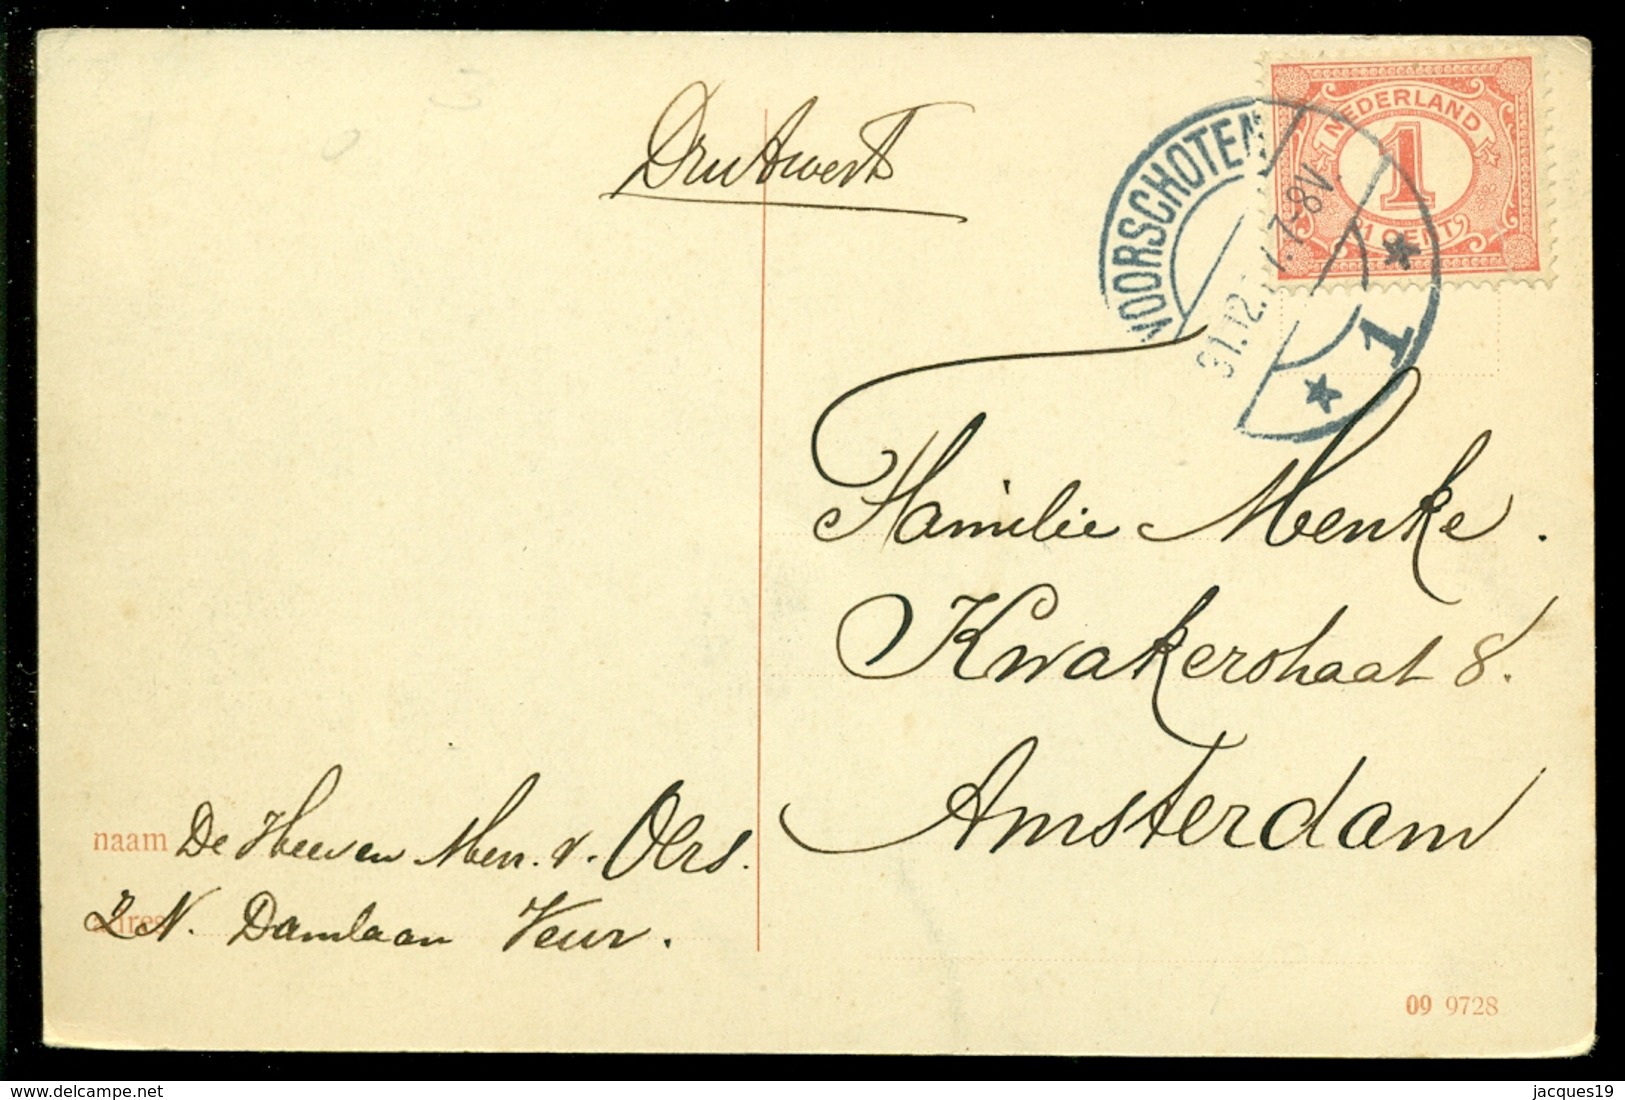 Drukwerk
NEDERLAND
1
1 CENT
VOORSCHOTEN
31.12. 7-8V.
* 1 *
Familie Menke.
Kwakerstraat 8.
Amsterdam
naam De Heer en Mev. v. Oers.
adres 2 N. Damlaan Veur.
09 9728
delcampe.net
jacques19